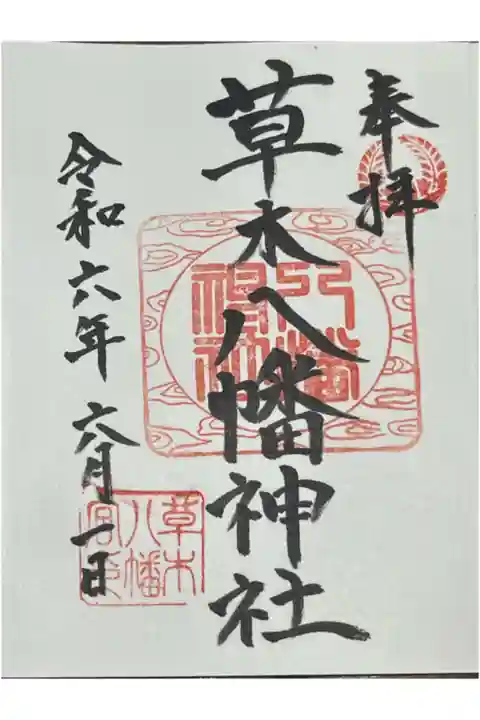 奉拝
草木八幡神社
令和六年六月一日
八幡
草木
八幡
宮